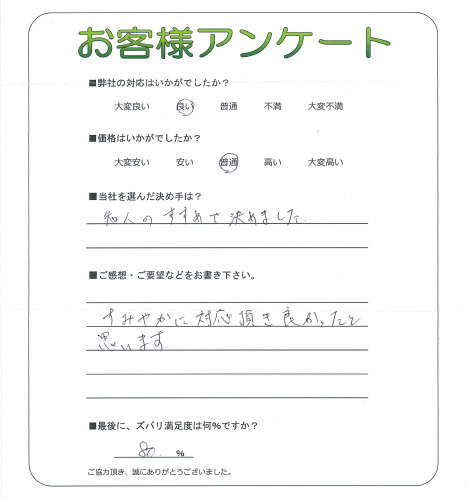 お客様アンケート
■弊社の対応はいかがでしたか？
大変良い 良い 普通 不満 大変不満
■価格はいかがでしたか？
大変安い 安い 普通 高い 大変高い
■当社を選んだ決め手は？
知人のすすめで決めました
■ご感想・ご要望などをお書き下さい。
すみやかに対応頂き良かったと
思います
■最後に、ズバリ満足度は何%ですか？
80 %
ご協力頂き、誠にありがとうございました。